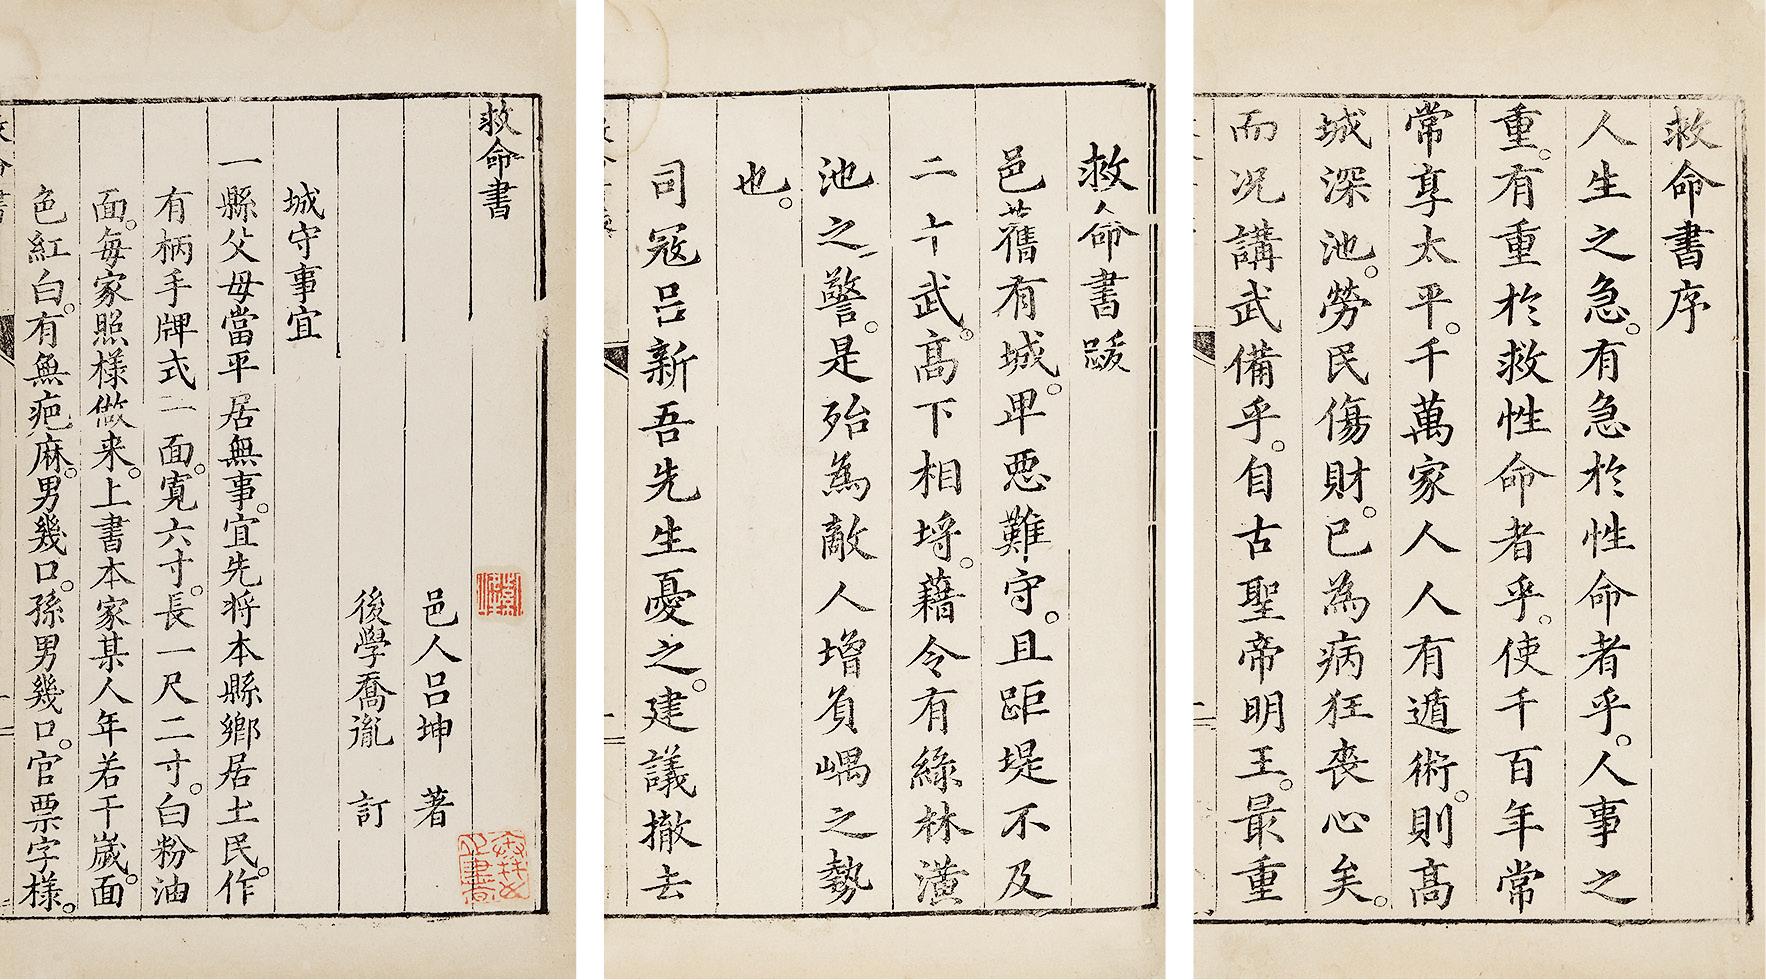 救命書序
人生之急。有急於性命者乎。人事之
重。有重於救性命者乎。使千百年常
常享太平。千萬家人人有遁術。則高
城深池。勞民傷財。已為病狂喪心矣。
而况講武備乎。自古聖帝明王。最重
救命書跋
邑舊有城。卑惡難守。且距堤不及
二十武。高下相埒。藉令有綠林潢
池之警。是殆為敵人增負嵎之勢
也。
司寇呂新吾先生憂之。建議撤去
救命書
邑人呂坤 著
後學喬胤 訂
城守事宜
一縣父母當平居無事。宜先將本縣鄉居士民。作
有柄手牌式二面。寬六寸。長一尺二寸。白粉油
面。每家照樣做来。上書本家某人年若干歲。面
色紅白。有無疤麻。男幾口。孫男幾口。官票字樣。